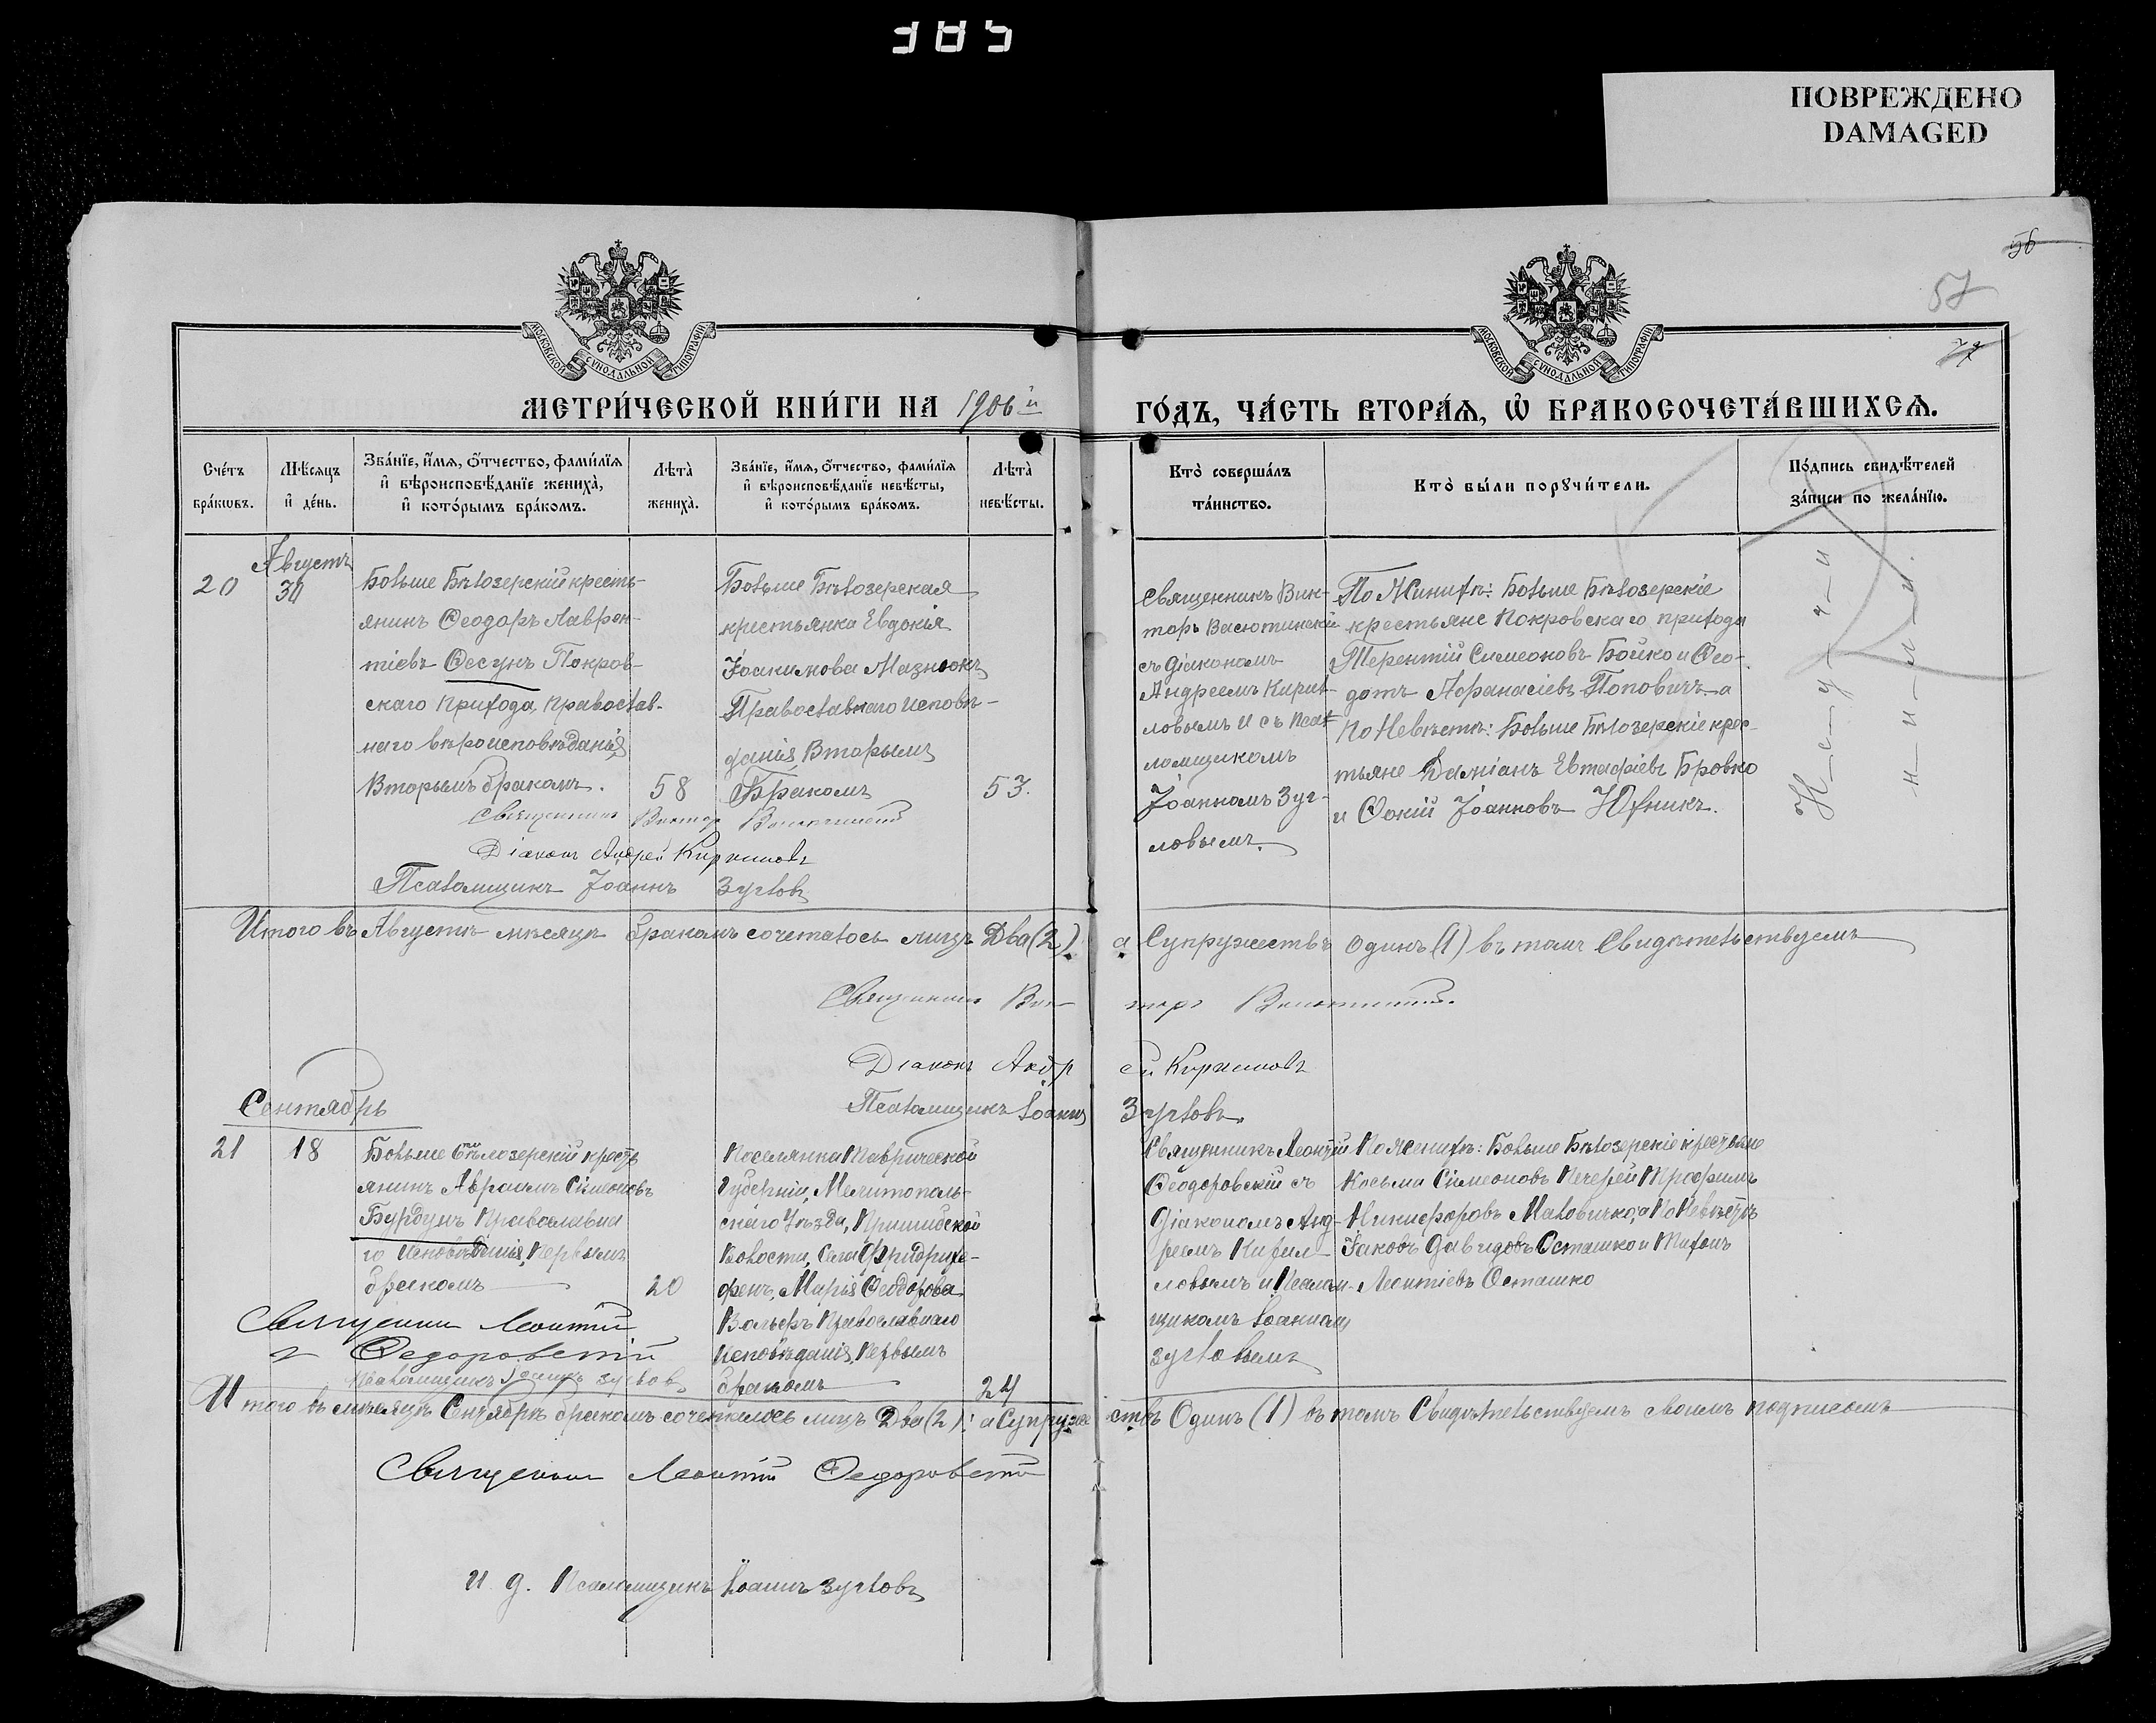 385
ПОВРЕЖДЕНО
DAMAGED
56
57
МОСКОВСКОЙ СѴНОДАЛЬНОЙ ТИПОГРАФІИ
МОСКОВСКОЙ СѴНОДАЛЬНОЙ ТИПОГРАФІИ
МЕТРИ́ЧЕСКОЙ КНИ́ГИ НА 1906й
ГО́ДЪ, ЧА́СТЬ ВТОРА́Ѧ, Ѽ БРАКОСОЧЕТА́ВШИХСѦ.
Сче́тъ
бра́кѡвъ.
Мѣ́сѧцъ
и҆ де́нь.
Зва́нїе, и҆́мѧ, ѻ҆́тчество, фамѝлїѧ
и҆ вѣроисповѣ́данїе жениха̀,
и҆ кото́рымъ бра́комъ.
Лѣ́та̀
жениха̀.
Зва́нїе, и҆́мѧ, ѻ҆́тчество, фамѝлїѧ
и҆ вѣроисповѣ́данїе невѣ́сты,
и҆ кото́рымъ бра́комъ.
Лѣ́та̀
невѣ́сты.
Кто̀ соверша́лъ
та́инство.
Кто̀ бы́ли порꙋчи́тели.
По́дпись свидѣ́телей
за́писи по жела́нїю.
20
Августъ
30
Больше Бѣлозерскій кресть-
янинъ Ѳеодоръ Лаврен-
тіевъ Ѳесунъ Покров-
скаго прихода, православ-
наго вѣроисповѣданія
Вторымъ бракомъ.
58
Больше Бѣлозерская
крестьянка Евдокія
Іоакимова Мазнюкъ
Православнаго исповѣ-
данія, Вторымъ
Бракомъ
53.
Священникъ Вик-
торъ Васютинскій
съ діакономъ
Андреемъ Кирил-
ловымъ и съ псал-
ломщикомъ
Іоанномъ Зуг-
ловымъ.
По Жинихѣ: Больше Бѣлозерскіе
крестьяне Покровскаго прихода
Терентій Симеоновъ Бойко и Ѳео-
дотъ Афанасіевъ Поповичъ а
по Невѣстѣ: Больше Бѣлозерскіе крес-
тьяне Даміанъ Евтафіевъ Бровко
и Ѳокій Іоанновъ Юхникъ.
Священникъ Виктор Васютинскій
Діаконъ Андрей Кирилловъ
Псаломщикъ Іоаннъ Зуглов
Итого въ Августѣ мѣсяцѣ бракомъ сочеталось лицъ Два (2). а Супружествъ одинъ (1) въ томъ Свидѣтельствуемъ
Священникъ Виктор Васютинскій.
Діаконъ Андрей Кирилловъ
Псаломщикъ Іоаннъ Зугловъ.
Сентябрь
21
18
Больше Бѣлозерскій кресть
янинъ Авраамъ Сімеоновъ
Бурдунъ Православна
го исповѣданія, Первымъ
бракомъ
20
Поселянка Таврической
Губерніи, Мелитополь-
скаго Уѣзда, Пришибской
Волости, Села Фридрихс-
фенъ, Марія Ѳеодорова
Вольфъ Православнаго
исповѣданія, Первымъ
бракомъ
24
Священникъ Леонтій
Ѳеодоровскій съ
Діакономъ Анд-
реемъ Кирил-
ловымъ и Псалом-
щикомъ Іоанномъ
Зугловымъ
По Женихѣ: Больше Бѣлозерскіе крестьяне
Косьма Симеоновъ Печерей Трофимъ
Никифоровъ Маловичко, а По Невѣстѣ
Іаковъ Давидовъ Осташко и Тихонъ
Леонтіевъ Осташко
Священникъ Леонтій
Ѳедоровскій
Псаломщикъ Іоаннъ Зуглов
Итого въ мѣсяцѣ Сентябрѣ бракомъ сочеталось лицъ Два (2): а Супружествъ Одинъ (1) въ томъ Свидѣтельствуемъ своимъ подписомъ
Священникъ Леонтій Ѳедоровскій
И. д. Псаломщикъ Іоаннъ Зугловъ